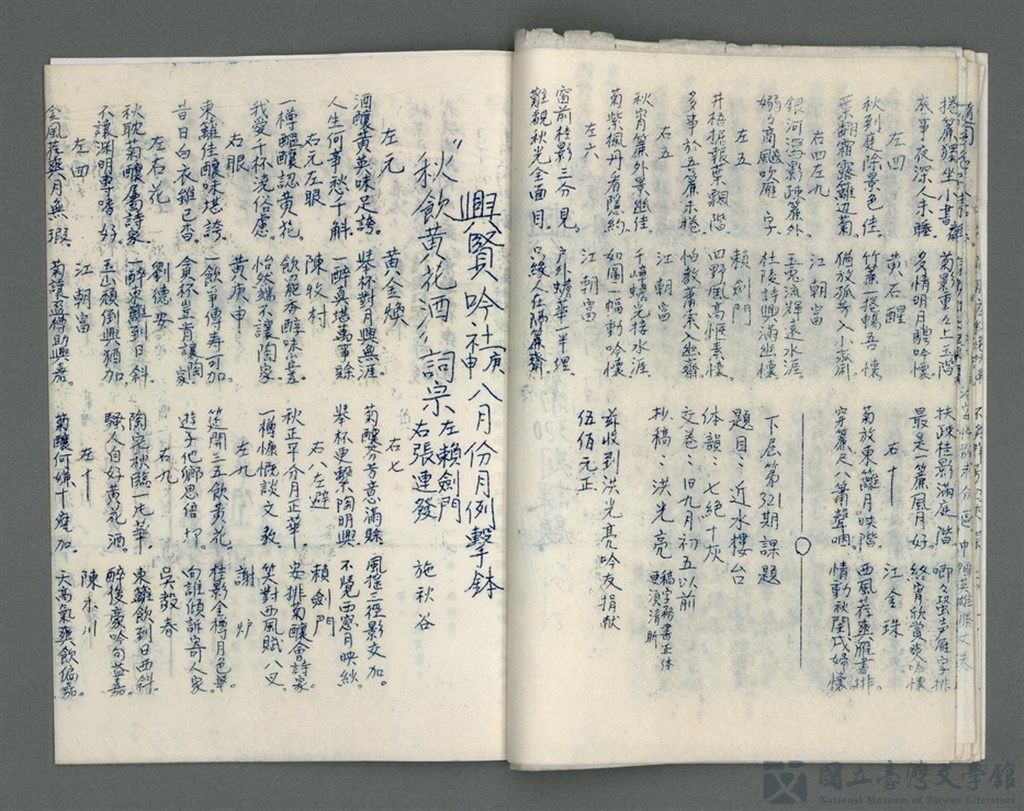 捲簾獨坐小書齋
菊影重々上玉階
扶疎桂影滿庭階
唧々蛩声雁字排
夜事夜深人未睡
多情明月照吟懷
最是一簾風月好
終宵欣賞爽吟懷
左四
黃石醒
右十
江金珠
秋到庭除景色佳
竹簾一捲暢吾懷
菊放東籬月映階
西風蒼爽雁書排
葉翻霜露籬边菊
猶放孤芳入小齋
穿簾尺八簫聲咽
情動秋閨戍婦懷
右四左九
江朝富
銀河瀉影睐簾外
玉兔流輝遠水涯
嫋々商風吹雁字
杜陵詩興滿幽懷
左五
賴劍門
井梧搖報葉飄階
四野風高愜素懷
多事於吾簾未捲
怕教事素入幽齋
右五
江朝富
秋宵簾外景幽佳
千嶂蟾光接水涯
菊紫楓丹看隱約
如圖一幅動吟懷
左六
江朝富
窗前桂影三分見
戶外蟾華一半埋
難視秋光全面目
只緣人在隔簾齋
下屆第321期課題
題目：近水樓台
体韻：七絕十灰
交卷：旧九月初五以前
抄稿：洪光亮 稿字務書正体更須清晰
茲收到洪光亮吟友捐献
伍佰元正
興賢吟社庚申八月份月例擊鉢
"秋飲黃花酒" 詞宗 左賴劍門 右張連發
左元
黃金煥
右七
施秋谷
酒釀黃英味足誇
舉杯對月興無涯
菊釀芬芳意滿賒
風搖三徑影交加
人生何事愁千斛
一醉真堪萬事賒
舉杯連繫陶明興
不覺西窓月映紗
右元左眼
陳牧村
右八左避
賴劍門
一樽醞釀認黃花
飲能香醇味益差
秋正平分月正華
安排菊釀會詩家
我愛千杯洗俗慮
怡然端不讓陶家
一樽慷慨談文教
笑對西風賦八叉
右眼
黃庚申
左九
謝炉
東籬佳釀味堪誇
一飲爭傳寿可加
筵開三五飲黃花
桂影金樽月色華
昔日白衣雖已杳
貪杯豈肯讓陶家
遊子他鄉思倍切
向誰傾訴寄人家
左右花
劉德安
右九
吳毅春
秋耽菊釀屬詩家
一醉東籬到日斜
陶家秋臨一片華
東籬飲到日西斜
不讓渊明專嗜好
玉山頹倒興猶加
騷人自好黃花酒
醉後豪吟句益嘉
左四
江朝富
左十
陳木川
金風蒼爽月無瑕
菊讌盃傳助興嘉
菊釀何嫌十度加
天高氣爽飲偏嘉
國立臺灣文學館
National Museum of Taiwan Literature